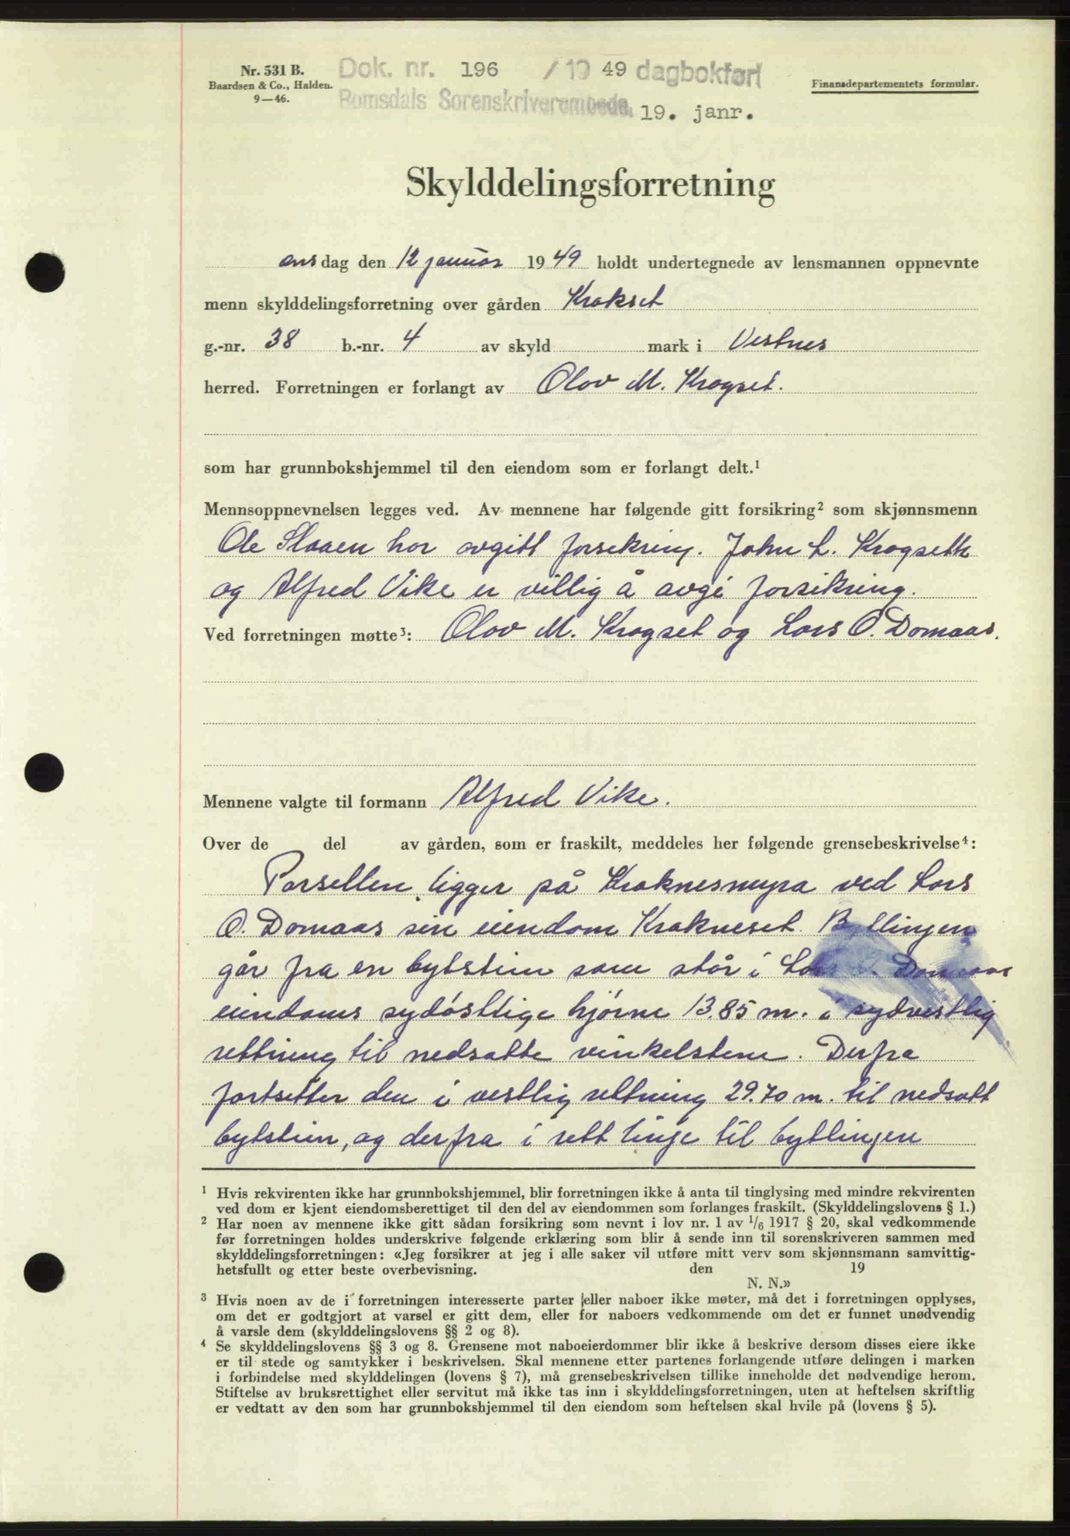 Nr. 531 B.
Baardsen & Co., Halden.
9—46.
Dok. nr. 196 /19 49 dagbokført
Romsdals Sorenskriverembede. 19. janr.
Finansdepartementets formular.
Skylddelingsforretning
onsdag den 12 januar 1949 holdt undertegnede av lensmannen oppnevnte
menn skylddelingsforretning over gården Krokset
g.-nr. 38 b.-nr. 4 av skyld mark i Vestnes
herred. Forretningen er forlangt av Olov M. Krogset.
som har grunnbokshjemmel til den eiendom som er forlangt delt.¹
Mennsoppnevnelsen legges ved. Av mennene har følgende gitt forsikring² som skjønnsmenn
Ole Slaaen har avgitt forsikring. John L. Krogseth
og Alfred Vike er villig å avgi forsikring.
Ved forretningen møtte³: Olov M. Krogset og Lars O. Domaas.
Mennene valgte til formann Alfred Vike.
Over de del av gården, som er fraskilt, meddeles her følgende grensebeskrivelse⁴:
Parsellen ligger på Kraknesmyra ved Lars
O. Domaas sin eiendom Krakneset. Byttlingen
går fra en bytstein som står i Lars O. Domaas
eiendoms sydøstlige hjørne 13.85 m. i sydvestlig
rettning til nedsatte vinkelstene. Derfra
fortsetter den i vestlig rettning 29.70 m. til nedsatt
bytstein, og derfra i rett linje til byttlingen
¹ Hvis rekvirenten ikke har grunnbokshjemmel, blir forretningen ikke å anta til tinglysing med mindre rekvirenten
ved dom er kjent eiendomsberettiget til den del av eiendommen som forlanges fraskilt. (Skylddelingslovens § 1.)
² Har noen av mennene ikke gitt sådan forsikring som nevnt i lov nr. 1 av 1/6 1917 § 20, skal vedkommende
før forretningen holdes underskrive følgende erklæring som blir å sende inn til sorenskriveren sammen med
skylddelingsforretningen: «Jeg forsikrer at jeg i alle saker vil utføre mitt verv som skjønnsmann samvittig-
hetsfullt og etter beste overbevisning. den 19
N. N.»
³ Hvis noen av de i forretningen interesserte parter eller naboer ikke møter, må det i forretningen opplyses,
om det er godtgjort at varsel er gitt dem, eller for naboers vedkommende om det er funnet unødvendig
å varsle dem (skylddelingslovens §§ 2 og 8).
⁴ Se skylddelingslovens §§ 3 og 8. Grensene mot naboeierdommer blir ikke å beskrive dersom disses eiere ikke
er til stede og samtykker i beskrivelsen. Skal mennene etter partenes forlangende utføre delingen i marken
i forbindelse med skylddelingen (lovens § 7), må grensebeskrivelsen tillike inneholde det nødvendige herom.
Stiftelse av bruksrettighet eller servitut må ikke tas inn i skylddelingsforretningen, uten at heftelsen skriftlig
er vedtatt av den som har grunnbokshjemmel til den eiendom som heftelsen skal hvile på (lovens § 5).